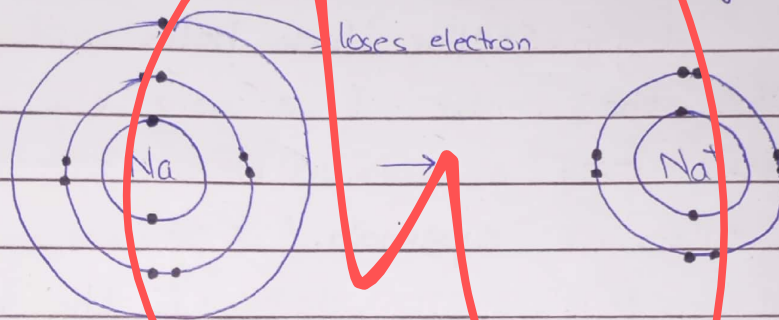 loses electron
Na → Na⁺